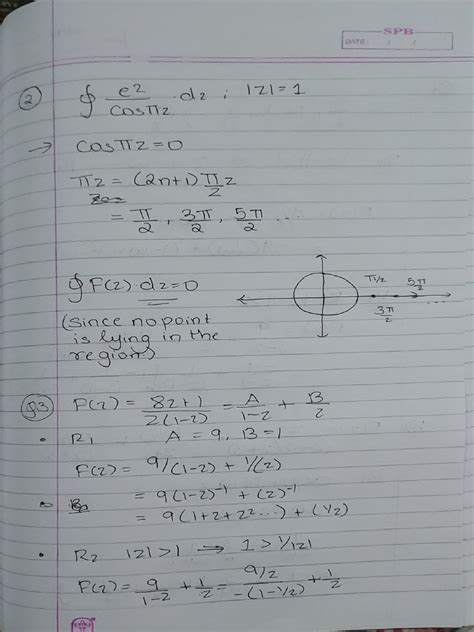 SPB
DATE: / /
② ∮ e^z / cosπz · dz ; |z|=1
→ cosπz=0
πz = (2n+1) π/2 z
= π/2, 3π/2, 5π/2 ...
∮ F(z)·dz=0
(since no point
is lying in the
region)
π/2 5π/2
3π/2
Q3 F(z) = 8z+1 / z(1-z) = A / 1-z + B / z
• R₁ A = 9, B=1
F(z) = 9/(1-z) + 1/(z)
= 9(1-z)⁻¹ + (z)⁻¹
= 9(1+z+z²...) + (1/z)
• R₂ |z|>1 → 1 > 1/|z|
F(z) = 9 / 1-z + 1/z = 9/z / -(1-1/z) + 1/z